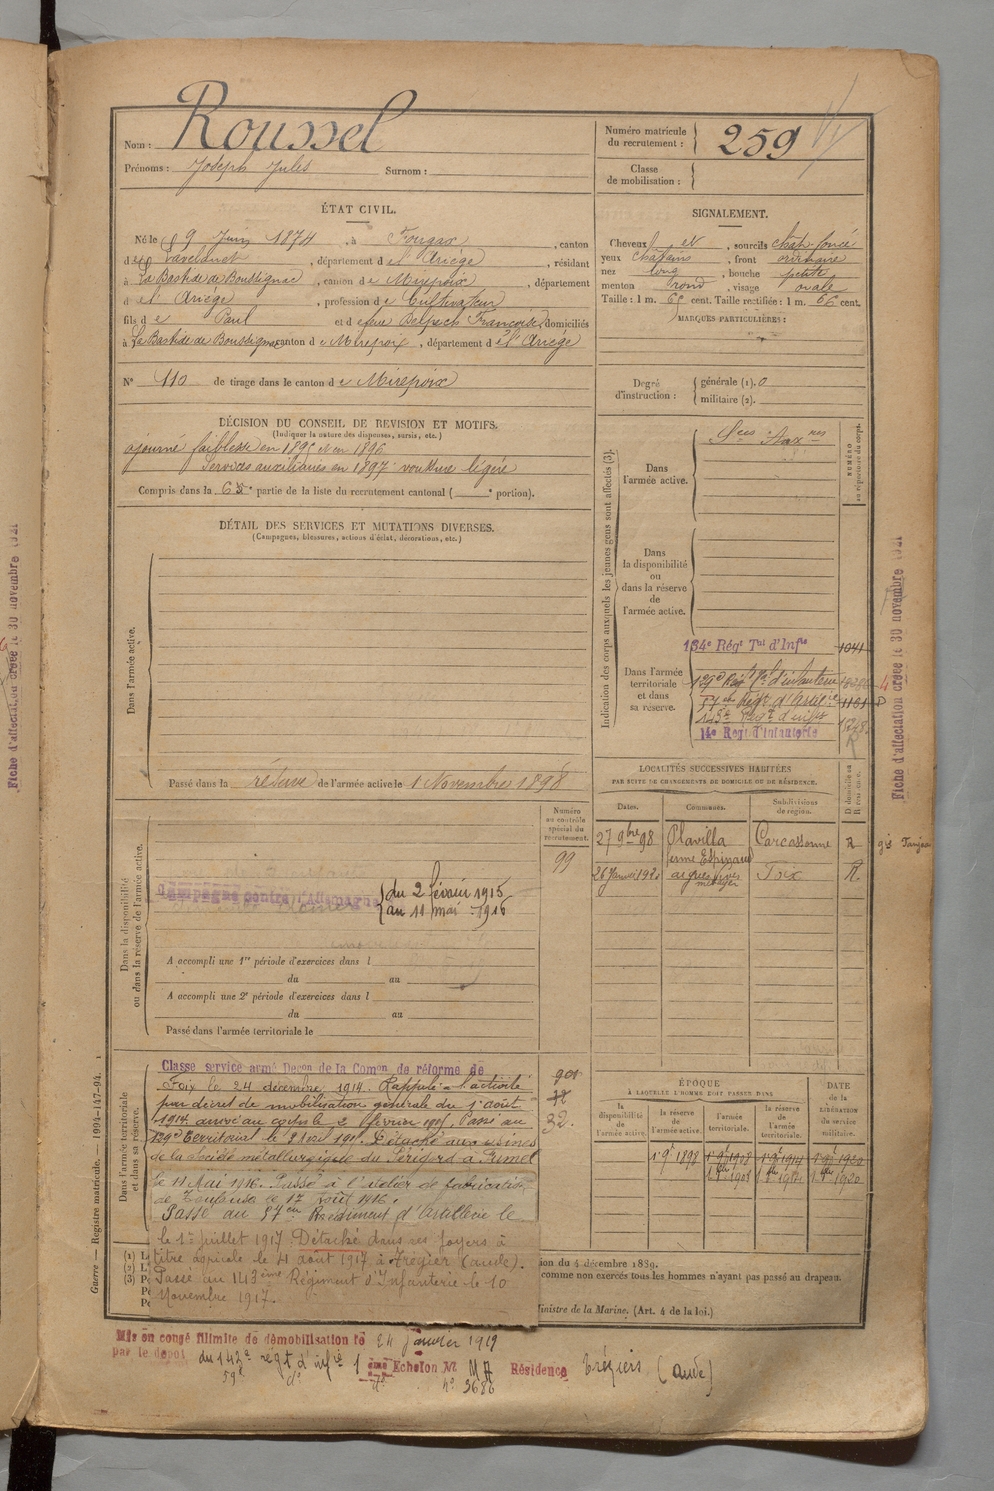 Nom : Roussel
Prénoms : Joseph Jules Surnom :
Numéro matricule du recrutement : 259
Classe de mobilisation :
ÉTAT CIVIL.
Né le 9 Juin 1874, à Fougax, canton
de Lavelanet, département de l'Ariège, résidant
à La Bastide de Boussignac, canton de Mirepoix, département
de l'Ariège, profession de Cultivateur
fils de Paul et de feue Delpech Françoise, domiciliés
à La Bastide de Boussignac, canton de Mirepoix, département de l'Ariège
N° 110 de tirage dans le canton de Mirepoix
SIGNALEMENT.
Cheveux et, sourcils chat. foncé
yeux chatains, front ordinaire
nez long, bouche petite
menton rond, visage ovale
Taille : 1 m. 66 cent. Taille rectifiée : 1 m. 66 cent.
MARQUES PARTICULIÈRES :
Degré d'instruction : générale (1). 0
militaire (2).
DÉCISION DU CONSEIL DE REVISION ET MOTIFS.
(Indiquer la nature des dispenses, sursis, etc.)
ajourné faiblesse en 1895 et en 1896
Services auxiliaires en 1897 voussure légère
Compris dans la 6e partie de la liste du recrutement cantonal ( e portion).
DÉTAIL DES SERVICES ET MUTATIONS DIVERSES.
(Campagnes, blessures, actions d'éclat, décorations, etc.)
Dans l'armée active.
Passé dans la réserve de l'armée active le 1 Novembre 1898
Indication des corps auxquels les jeunes gens sont affectés (3).
NUMÉRO au répertoire du corps.
Dans l'armée active.
Sces Auxres
Dans la disponibilité ou dans la réserve de l'armée active.
Dans l'armée territoriale et dans sa réserve.
134e Régt Tal d'Infie 1041
129e Régt Tal d'infanterie
57me Régt d'Artillie 1101
143e Régt d'infie
14e Régt d'Infanterie
LOCALITÉS SUCCESSIVES HABITÉES
PAR SUITE DE CHANGEMENTS DE DOMICILE OU DE RÉSIDENCE.
Dates. Communes. Subdivisions de région. D domicile ou R résidence.
27 9bre 98 Plavilla Carcassonne R
ferme Espinaud
26 Janvier 192 aigues vives Foix R
métayer
Numéro au contrôle spécial du recrutement.
99
Dans la disponibilité ou dans la réserve de l'armée active.
Campagne contre l'Allemagne du 2 février 1915
au 11 mai 1916
A accompli une 1re période d'exercices dans l
du au
A accompli une 2e période d'exercices dans l
du au
Passé dans l'armée territoriale le
Dans l'armée territoriale et dans sa réserve.
Classé service armé Décon de la Comon de réforme de
Foix le 24 décembre 1914. Rappelé à l'activité
par décret de mobilisation générale du 1 août
1914 arrivé au corps le 2 février 1915. Passé au
129e Territorial le Détaché aux usines
de la Société métallurgique du Périgord à Fumel
le 11 Mai 1916. Passé à l'atelier de fabrication
de Toulouse le 17 août 1916.
Passé au 57em Régiment d'Artillerie le
le 1er juillet 1917. Détaché dans ses foyers à
titre agricole le 4 août 1917 à Trégier (aude).
Passé au 143ème Régiment d'Infanterie le 10
Novembre 1917.
32.
ÉPOQUE
À LAQUELLE L'HOMME DOIT PASSER DANS
DATE DE LA LIBÉRATION DU SERVICE militaire.
la disponibilité de l'armée active. la réserve de l'armée active. l'armée territoriale. la réserve de l'armée territoriale.
1 9 1898 1 9 1908 1 9 1914 1 9 1920
1908 1914 1920
(1) L
(2) L
(3) P
ion du 4 décembre 1889.
comme non exercés tous les hommes n'ayant pas passé au drapeau.
inistre de la Marine. (Art. 4 de la loi.)
Mis en congé illimité de démobilisation le 24 Janvier 1919
par le dépôt du 143e régt d'infie 1 ème Echelon N° MA Résidence Trégiers (aude)
59e d° n° 3686
Guerre — Registre matricule. — 1994-147-94.
Fiche d'affectation créée le 30 novembre 1921
Fiche d'affectation créée le 30 novembre 1921